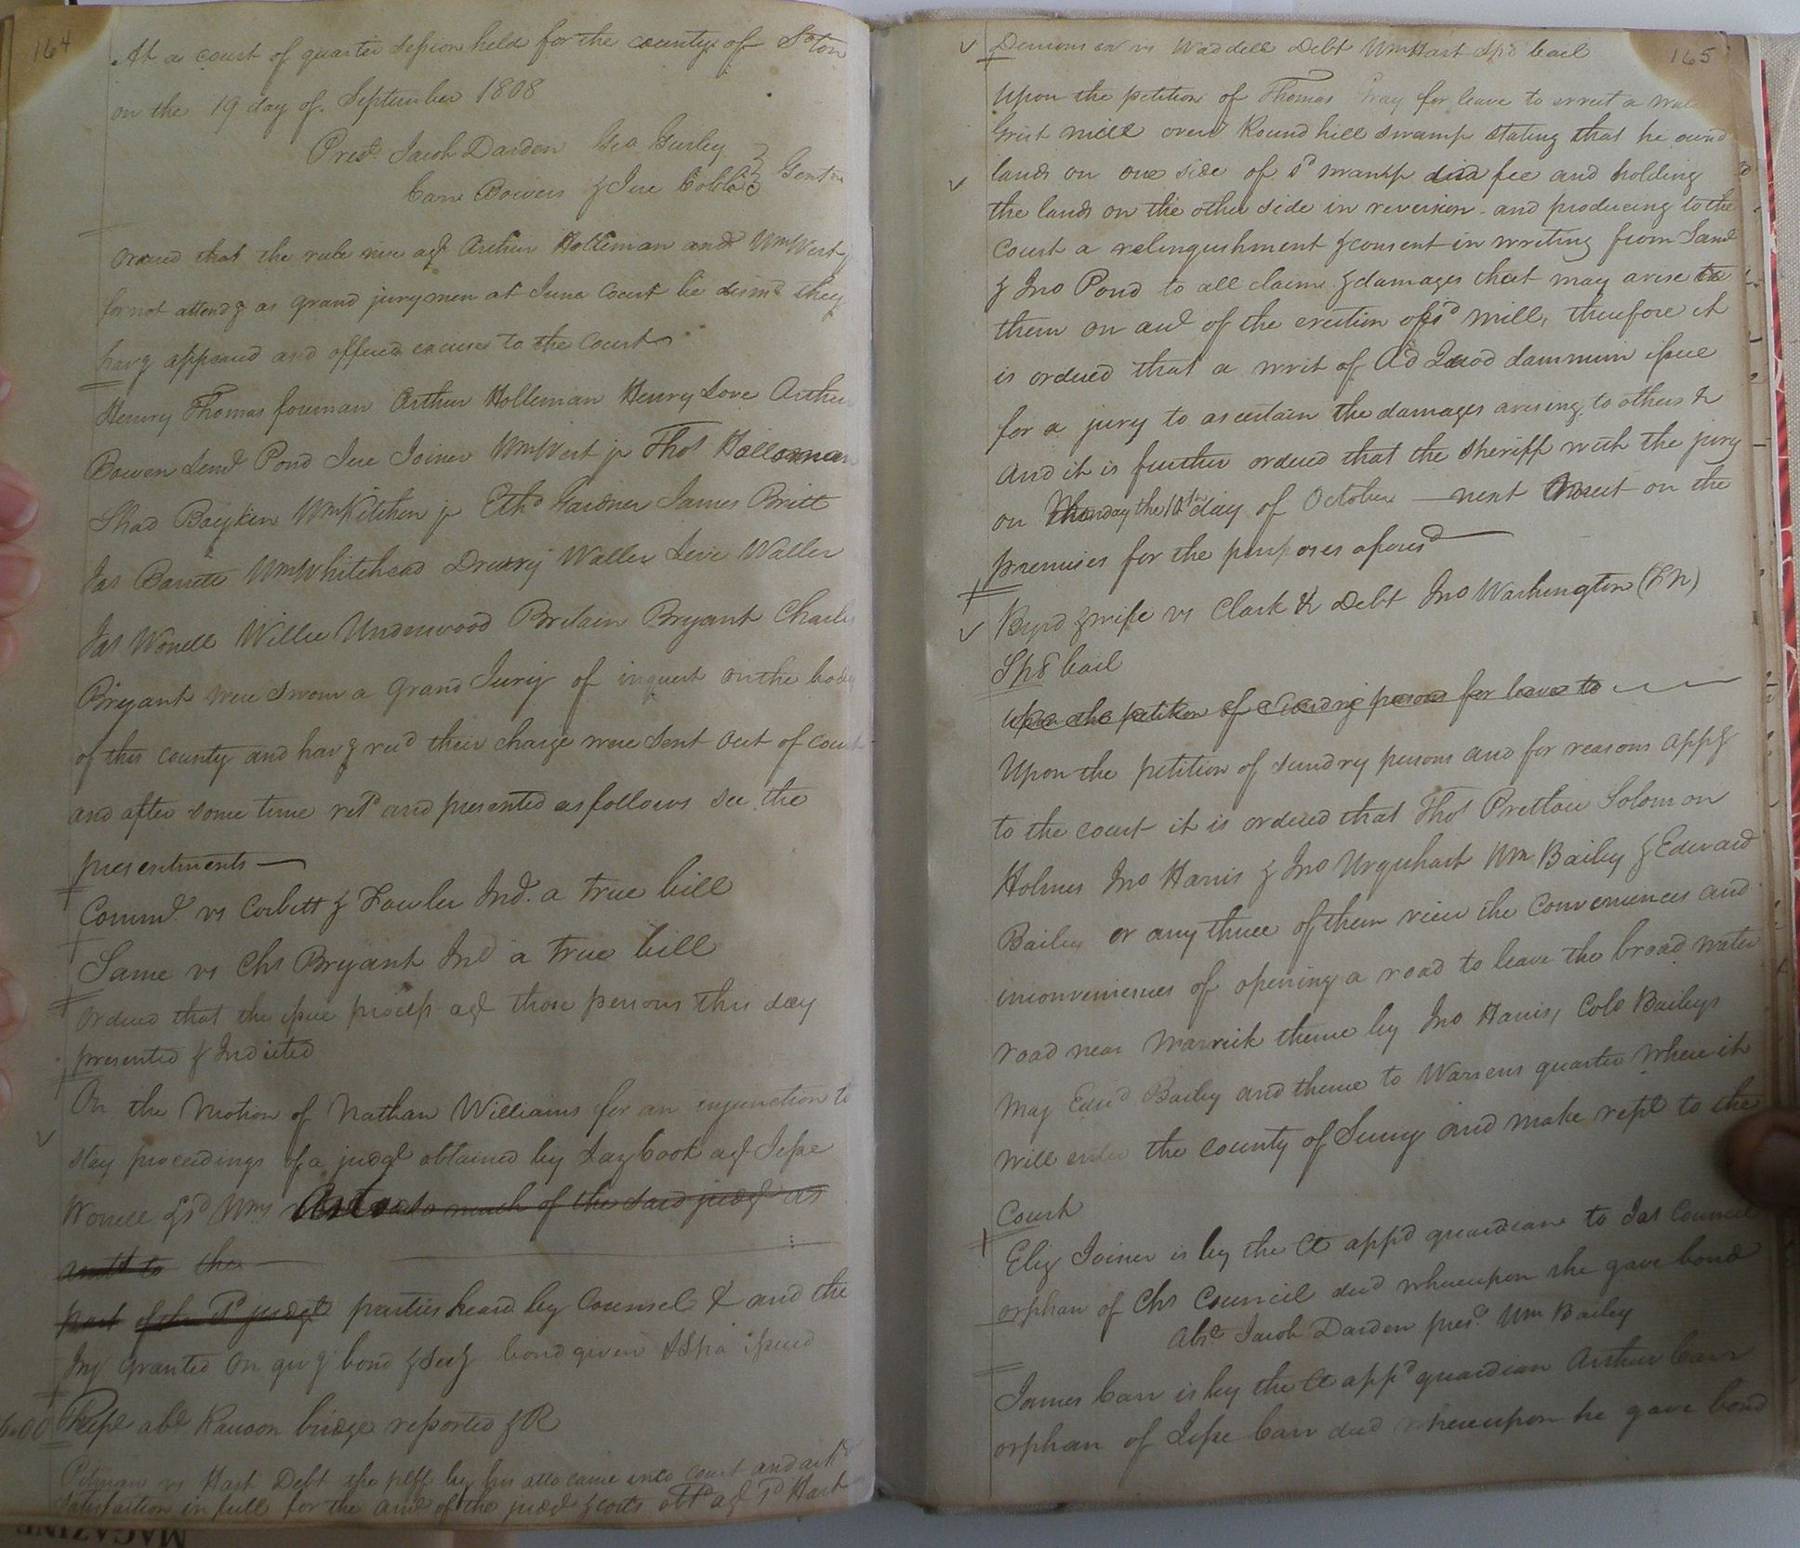 164
At a court of quarter session held for the county of S°ton
on the 19 day of September 1808
Prest. Jacob Darden Geo Gurley
Carr Bowers & Jere Cobb Gent
Ordered that the rule nisi agt Arthur Holleman and Wm West
for not attendg as grand jurymen at June Court be dismd they
havg appeared and offered excuses to the Court
Henry Thomas foreman Arthur Holleman Henry Love Arthur
Bowen Saml Pond Jere Joiner Wm West jr Thos Holloman
Shad Boykin Wm Kitchen jr Ethd Gardner James Britt
Jas Barrett Wm Whitehead Drewry Waller Levi Waller
Jas Worrell Willie Underwood Britain Bryant Charles
Bryant were sworn a Grand Jury of inquest on the body
of this county and havg recd their charge were sent out of court
and after some time retd and presented as follows see the
presentments
Commth vs Corbett & Lawler Indt. a true bill
Same vs Chs Bryant Indt a true bill
Ordered that the issue process agt those persons this day
presented & Indicted
On the Motion of Nathan Williams for an injunction to
stay proceedings of a judgt obtained by Laybook agt Jesse
Worrell & sd Wms as to so much of the said judgt as
the
part of the sd judgt parties heard by Counsel & and the
Inj granted on givg bond & secy bond given & Spa issued
Rept abt Rawson bridge reported & R
vs Hart Debt the pltf by his atto came into court and ackd
satisfaction in full for the amt of the judgt & costs obtd agt sd Hart
165
vs Waddell Debt Wm Hart Spd bail
Upon the petition of Thomas Gray for leave to errect a water
Grist mill over Round hill swamp stating that he owns
lands on one side of sd swamp in fee and holding
the lands on the other side in reversion and producing to the
Court a relinquishment & consent in writing from Saml
& Jno Pond to all claims & damages that may arise to
them on acct of the erection of sd mill, therefore it
is ordered that a writ of Ad Quod damnum issue
for a jury to ascertain the damages arising to others &
And it is further ordered that the Sheriff with the jury
on Monday the day of October next meet on the
premises for the purposes aforesd
Byrd & wife vs Clark & Debt Jno Washington (LN)
Sps bail
Upon the petition of sundry persons for leave to
Upon the petition of sundry persons and for reasons appg
to the court it is ordered that Thos Pretlow Solomon
Holmes Jno Harris & Jno Urquhart Wm Bailey & Edward
Bailey or any three of them view the conveniences and
inconveniences of opening a road to leave the broad water
road near Warrick thence by Jno Harris, Colo Baileys
Maj Edwd Bailey and thence to Warrens quarter where it
will enter the county of Surry and make rept to the
Court
Eliz Joiner is by the Ct appd guardian to Jas Council
orphan of Chs Council decd whereupon she gave bond
Abst Jacob Darden prest. Wm Bailey
James Carr is by the Ct appd guardian Arthur Carr
orphan of Jesse Carr decd whereupon he gave bond
MAGAZINE